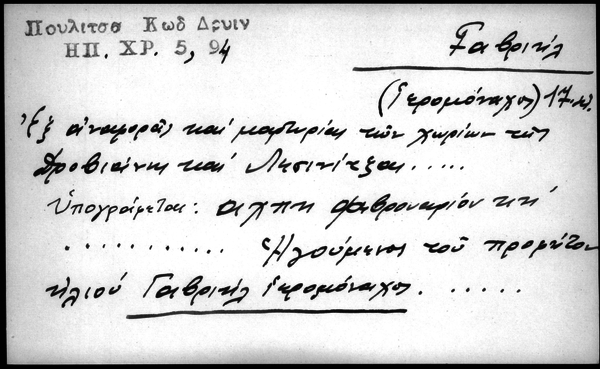 Πουλιτσα Κωδ Δρυιν
ΗΠ. ΧΡ. 5, 94
Γαβριήλ
(Ιερομόναχος) 17.
Ἐξ ἀναφορᾶς καὶ μαρτυρίας τῶν χωρίων τῆς
Δροβιάνης καὶ Λεσινίτζας .....
Ὑπογράφεται: αχπη φεβρουαρίου κή
........... Ἡγούμενος τοῦ προφήτου
ἠλιού Γαβριήλ ιερομόναχος. .....